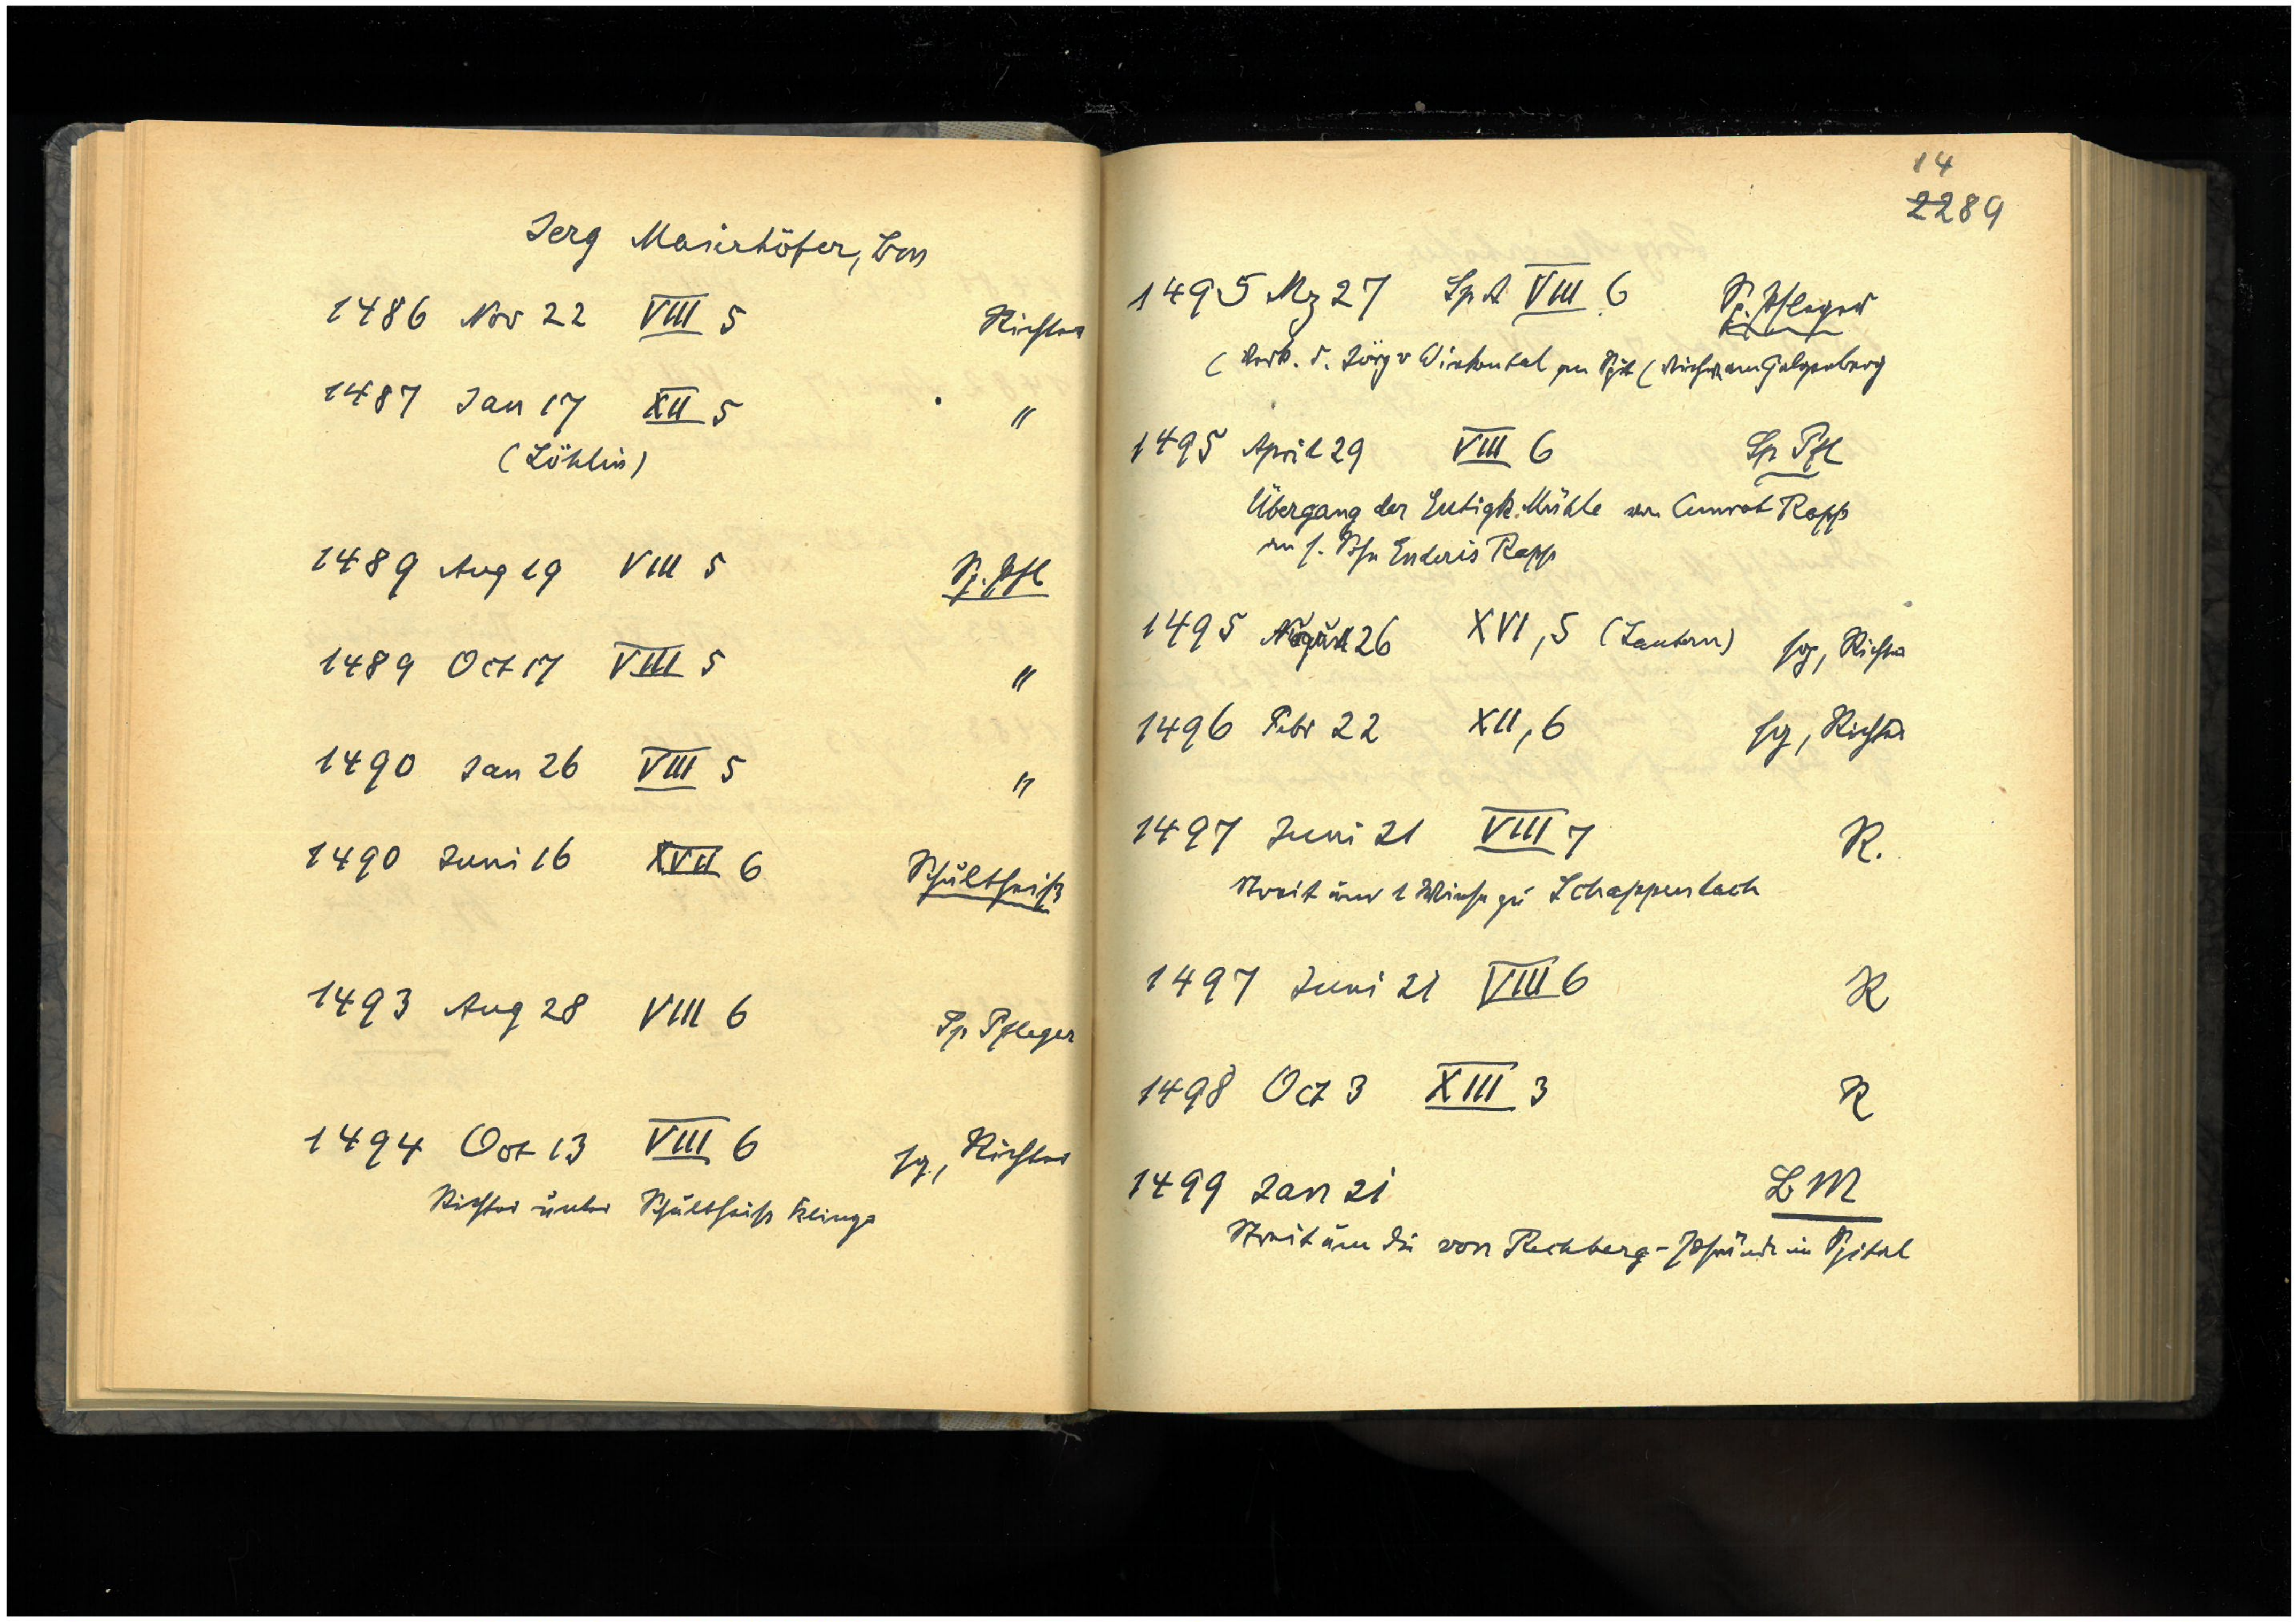 Jerg Maierhöfer, Bm
1486 Nov 22 VIII 5 Richter
1487 Jan 17 XII 5 "
(Löhlin)
1489 Aug 19 VIII 5 Sp. Pfl
1489 Oct 17 VIII 5 "
1490 Jan 26 VIII 5 "
1490 Juni 16 XVII 6 Schultheiß
1493 Aug 28 VIII 6 Sp Pfleger
1494 Oct 13 VIII 6 sg., Richter
Richter unter Schultheiß Klinge
14
2289
1495 Mz 27 Sp A VIII 6 Sp. Pfleger
(Verk. d. Jörg v Winkental an Spit (Wiese am Galgenberg
1495 April 29 VIII 6 Sp Pfl
Übergang der Eutigk. Mühle von Cunrat Rapp
an s. Sohn Enderis Rapp
1495 August 26 XVI, 5 (Lautern) sg, Richter
1496 Febr 22 XII, 6 sg, Richter
1497 Juni 21 VIII 7 R.
Streit um 1 Wiese zu Schappenlach
1497 Juni 21 VIII 6 R
1498 Oct 3 XIII 3 R
1499 Jan 21 BM
Streit um die von Rechberg-Pfründe im Spital